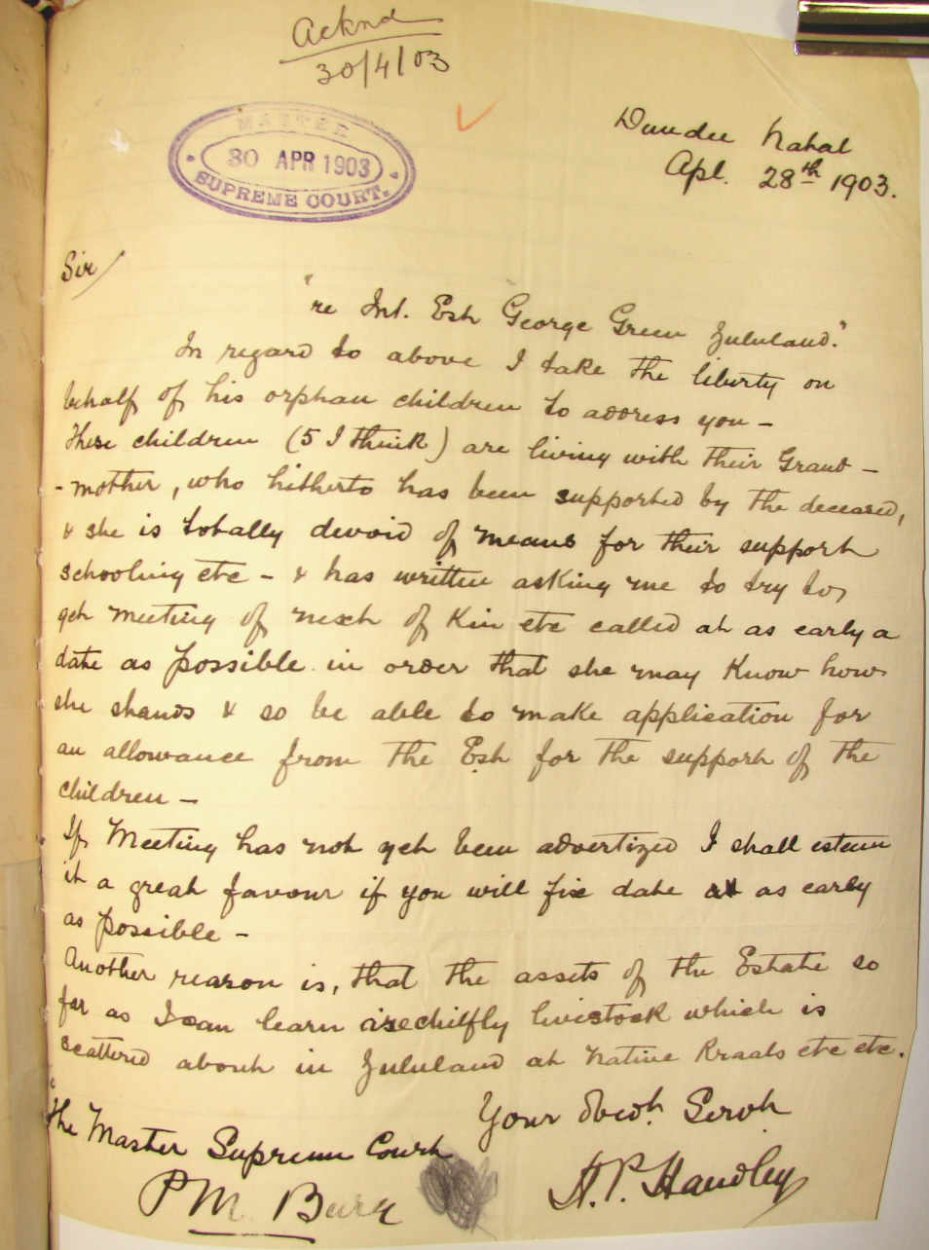 Acknd
30/4/03
MASTER
30 APR 1903
SUPREME COURT.
Dundee Natal
Apl. 28th 1903.
Sir/
"re Int. Est George Green Zululand."
In regard to above I take the liberty on
behalf of his orphan children to address you –
These children (5 I think) are living with their Grand –
- mother, who hitherto has been supported by the deceased,
& she is totally devoid of means for their support
schooling etc – & has written asking me to try to
get meeting of next of Kin etc called at as early a
date as possible in order that she may Know how
she stands & so be able to make application for
an allowance from the Est for the support of the
children –
If Meeting has not yet been advertized I shall esteem
it a great favour if you will fix date at as early
as possible –
Another reason is, that the assets of the Estate so
far as I can learn are chiefly livestock which is
scattered about in Zululand at Native Kraals etc etc.
Your Obedt. Servt.
The Master Supreme Court
P M Burg
H.P. Handley